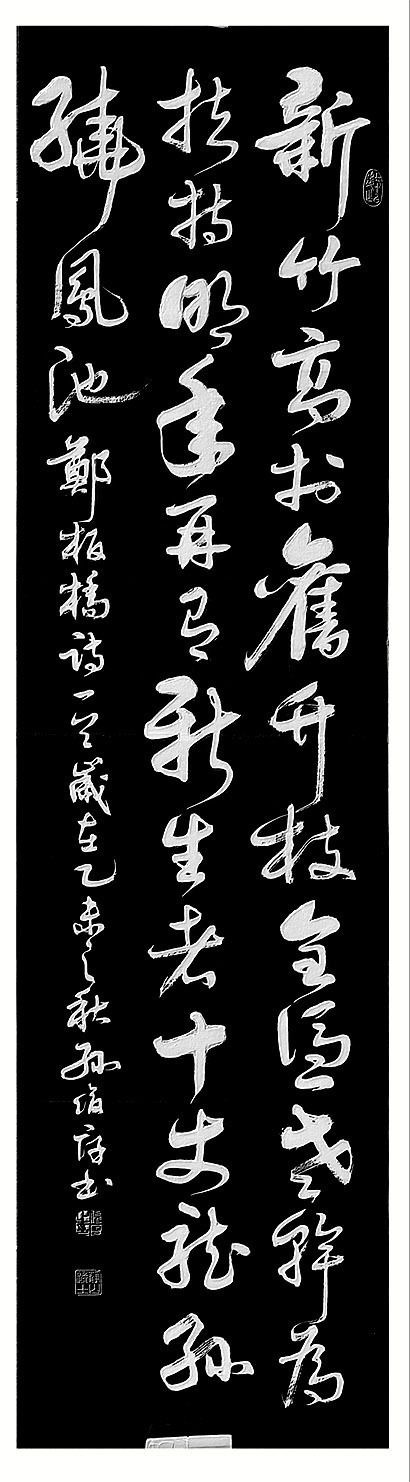 新竹高於舊竹枝全憑老幹為
扶持明年再有新生者十丈龍孫
繞鳳池鄭板橋詩一首歲在乙未之秋孫書